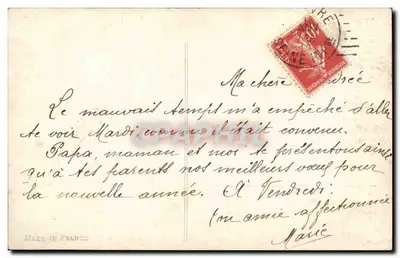 Ma chère Andrée
Le mauvais tempt m'a empêché d'aller
te voir Mardi comme c'était convenu.
Papa, maman et moi te présentons ainsi
qu'à tes parents nos meilleurs vœux pour
la nouvelle année. A Vendredi.
Ton amie affectionnée
Marie
MADE IN FRANCE